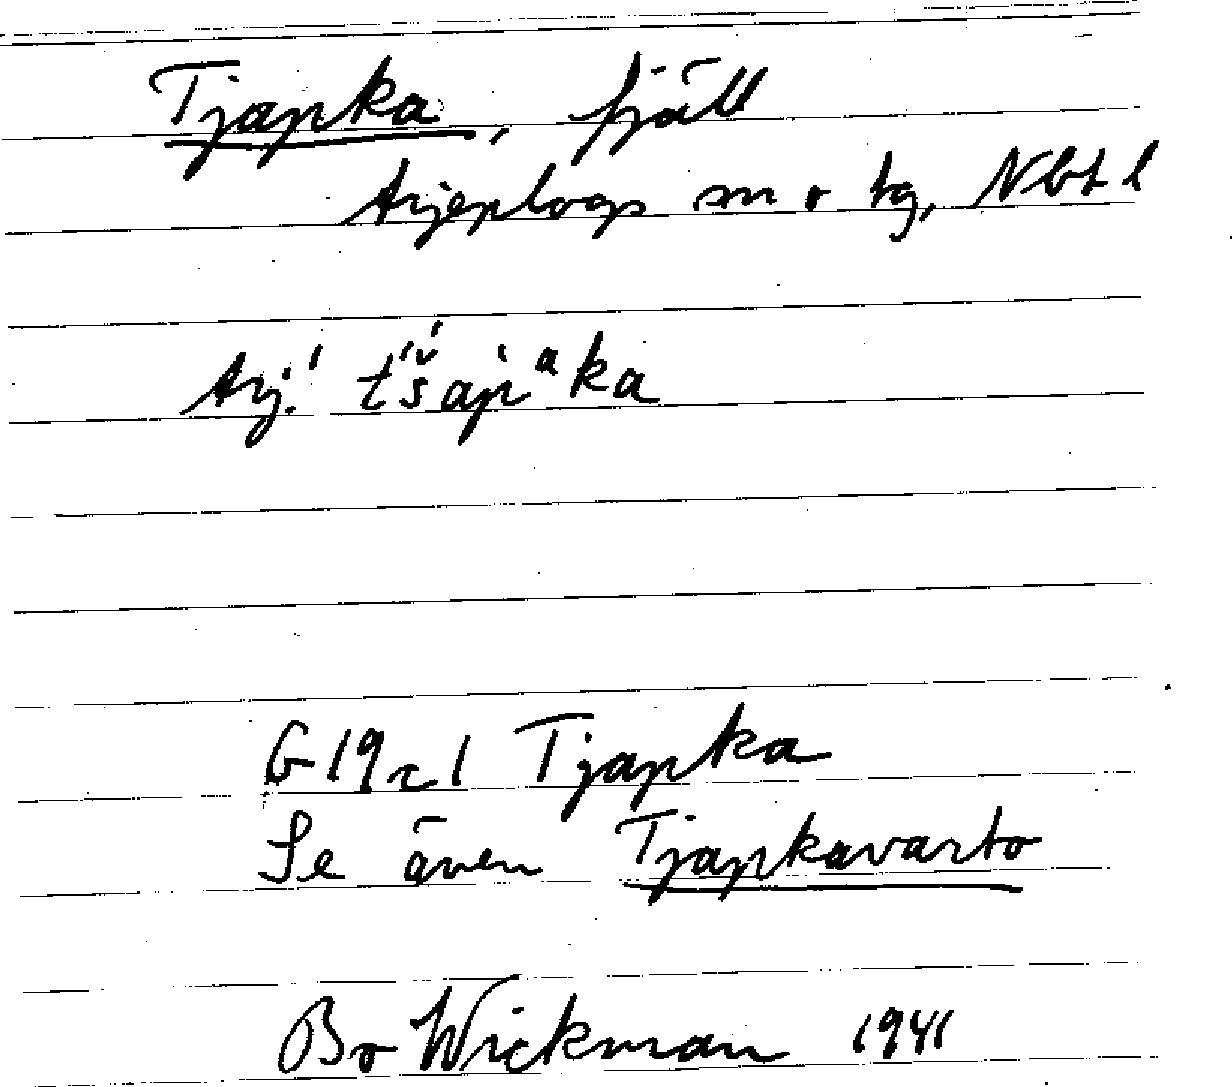 Tjapka, fjäll
Arjeplogs sn o tg, Nbt l
Arj. t́š́apᵃka
G 19 r 1 Tjapka
Se även Tjapkavarto
Bo Wickman 1941